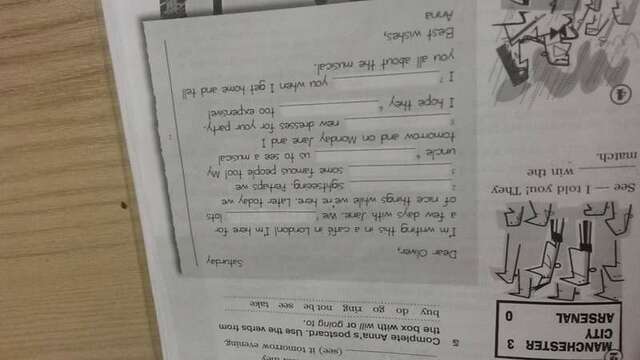 (see) it tomorrow evening.
2
MANCHESTER 3
CITY
ARSENAL 0
5 Complete Anna's postcard. Use the verbs from
the box with will or going to.
buy do go ring not be see take
See — I told you! They
win the
match.
4
Saturday
Dear Oliver,
I'm writing this in a café in London! I'm here for
a few days with Jane. We 1 lots
of nice things while we're here. Later today we
2 sightseeing. Perhaps we
3 some famous people too! My
uncle 4 us to see a musical
tomorrow and on Monday Jane and I
5 new dresses for your party.
I hope they 6 too expensive!
I 7 you when I get home and tell
you all about the musical.
Best wishes,
Anna